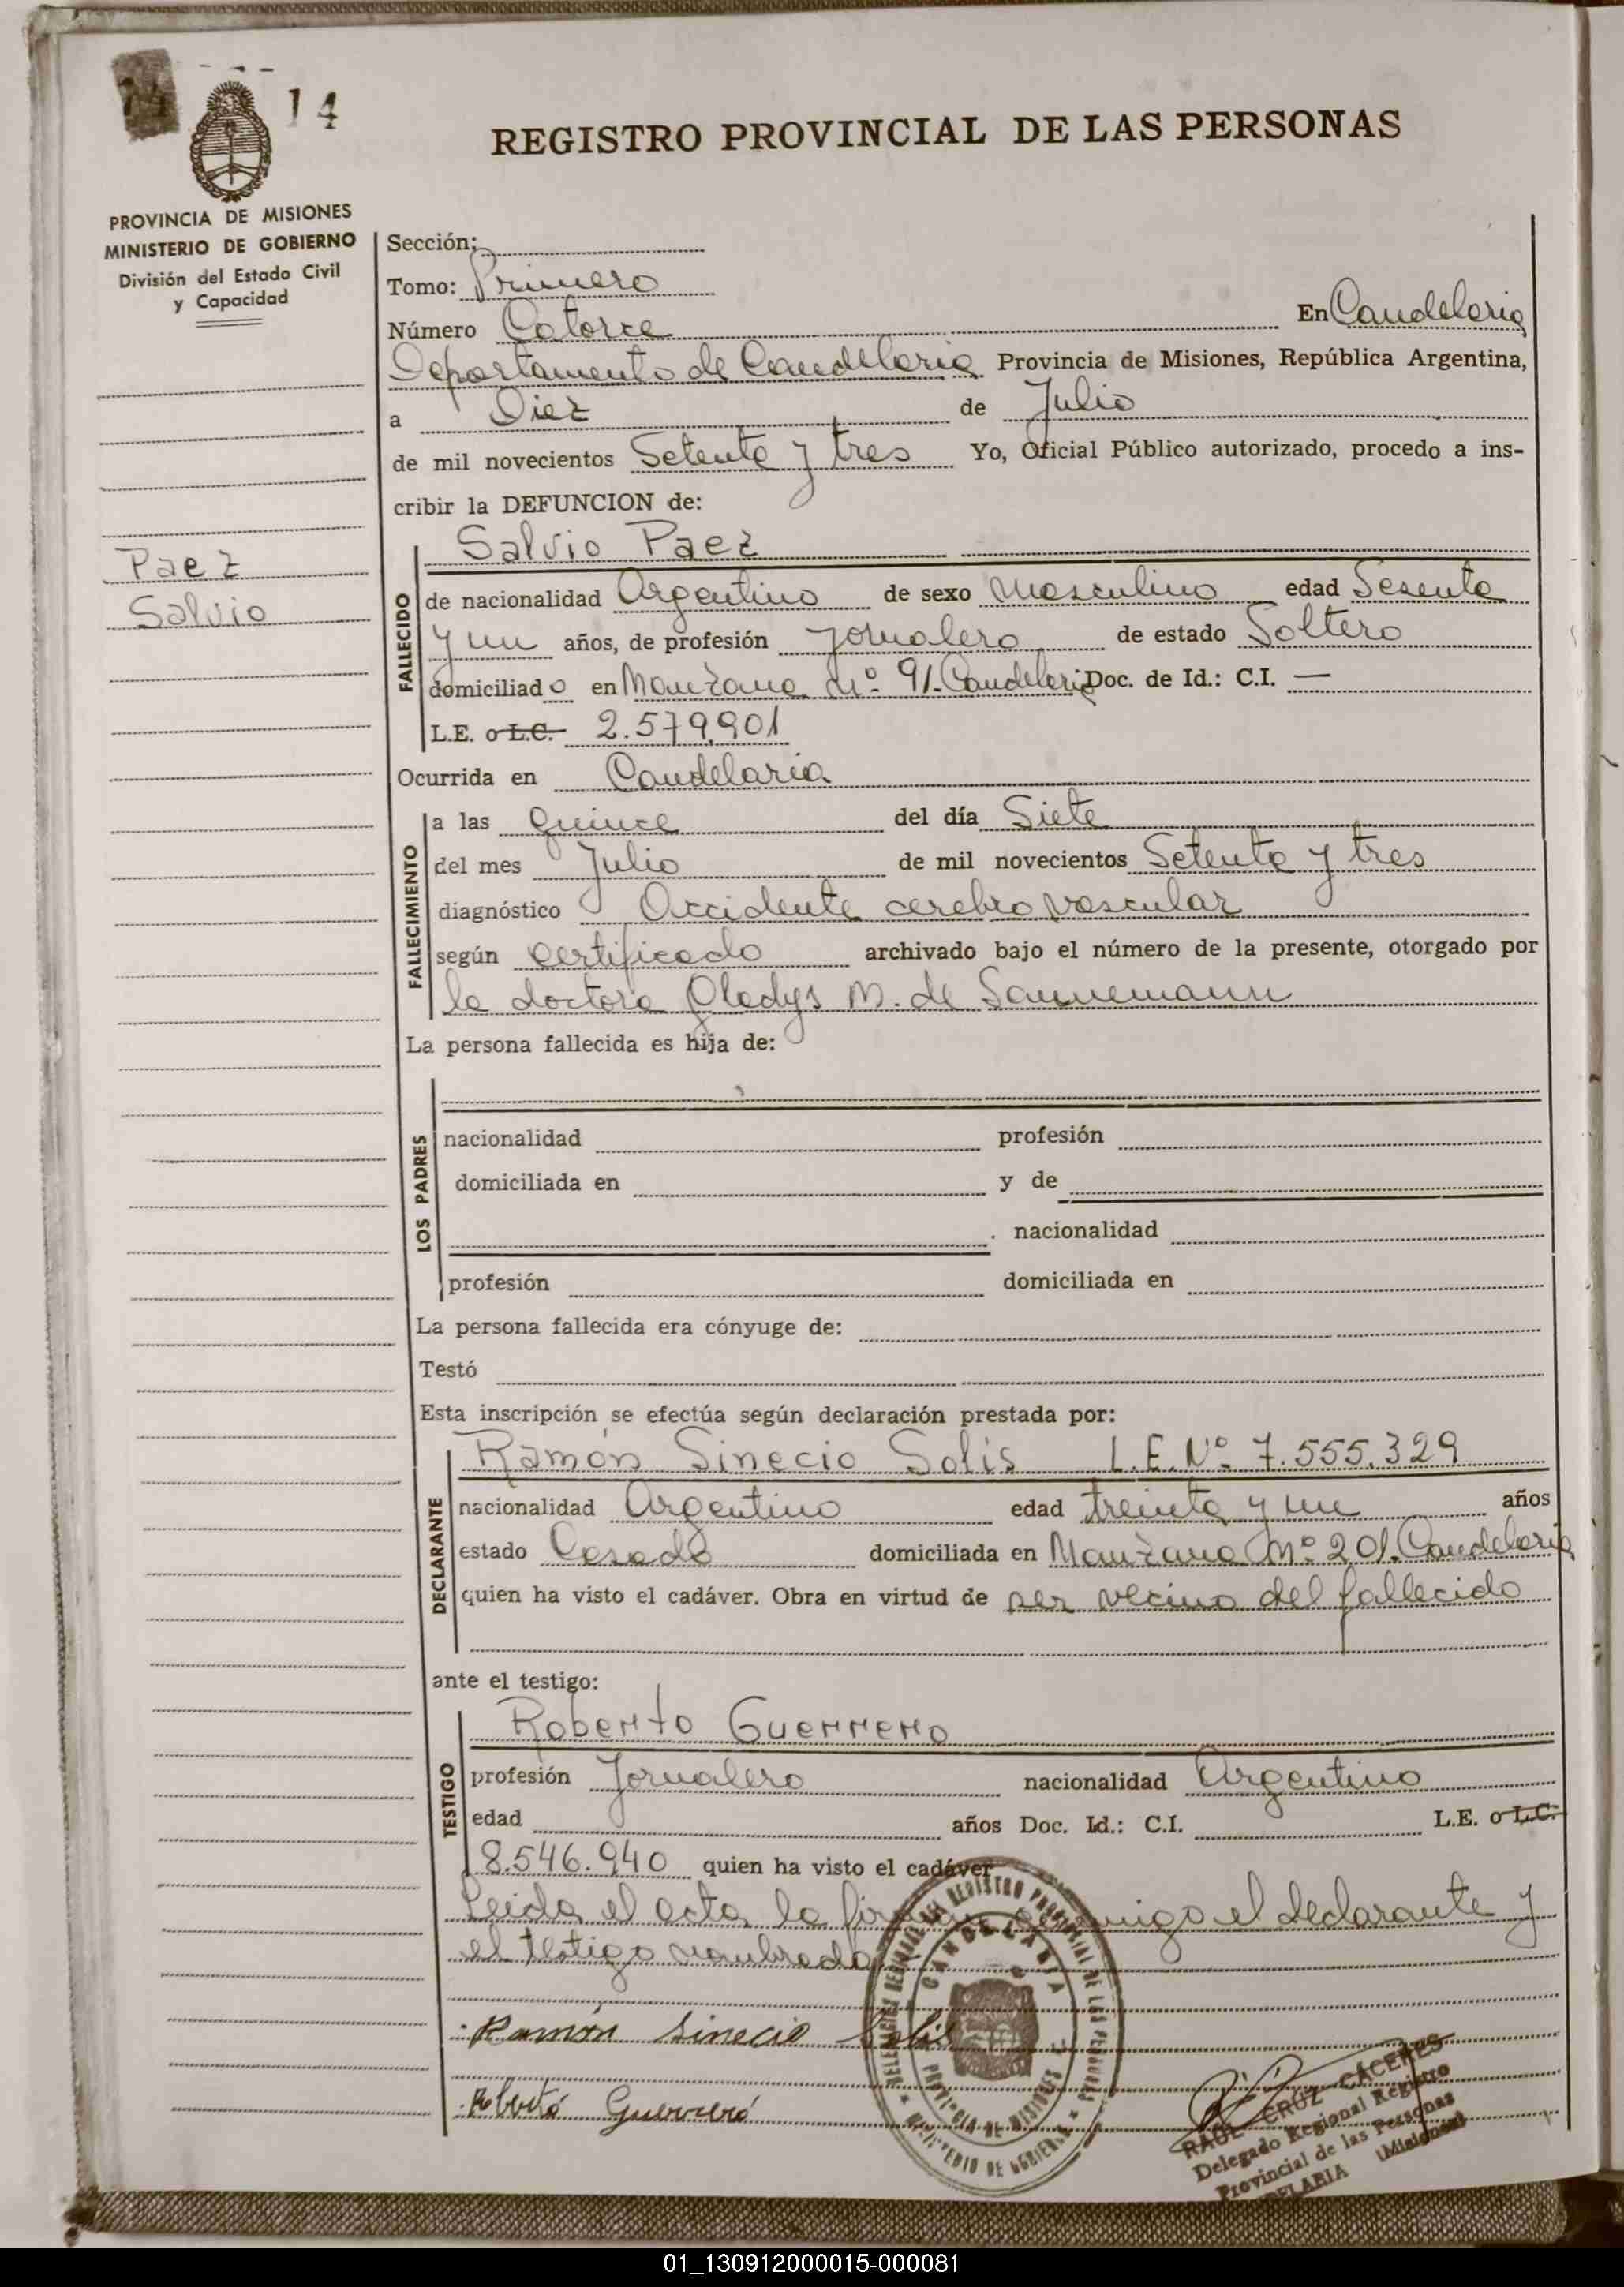 14
REGISTRO PROVINCIAL DE LAS PERSONAS
PROVINCIA DE MISIONES
MINISTERIO DE GOBIERNO
División del Estado Civil
y Capacidad
Paez
Salvio
Sección:
Tomo: Primero
Número Catorce En Candelaria
Departamento de Candelaria Provincia de Misiones, República Argentina,
a Diez de Julio
de mil novecientos Setenta y tres Yo, Oficial Público autorizado, procedo a ins-
cribir la DEFUNCION de:
FALLECIDO
Salvio Paez
de nacionalidad Argentino de sexo Masculino edad Sesenta
y un años, de profesión Jornalero de estado Soltero
domiciliado en Manzana Nº 91-Candelaria Doc. de Id.: C.I. —
L.E. o L.C. 2.579.901
Ocurrida en Candelaria
FALLECIMIENTO
a las quince del día Siete
del mes Julio de mil novecientos Setenta y tres
diagnóstico Accidente cerebro vascular
según certificado archivado bajo el número de la presente, otorgado por
la doctora Gladys M. de Sannemann
La persona fallecida es hija de:
LOS PADRES
nacionalidad profesión
domiciliada en y de
. nacionalidad
profesión domiciliada en
La persona fallecida era cónyuge de:
Testó
Esta inscripción se efectúa según declaración prestada por:
DECLARANTE
Ramón Sinecio Solis L.E. Nº 7.555.329
nacionalidad Argentino edad treinta y un años
estado Casado domiciliada en Manzana Nº 201. Candelaria
quien ha visto el cadáver. Obra en virtud de ser vecino del fallecido
ante el testigo:
TESTIGO
Roberto Guerrero
profesión Jornalero nacionalidad Argentino
edad años Doc. Id.: C.I. L.E. o L.C.
8.546.940 quien ha visto el cadáver
Leida el acta la conmigo el declarante y
el testigo nombrado
Ramón Sinecio Solis
Roberto Guerreró
CANDELARIA
PROVINCIA DE MISIONES
MINISTERIO DE GOBIERNO
RAUL CRUZ CACERES
Delegado Regional Registro
Provincial de las Personas
(Misiones)
01_130912000015-000081